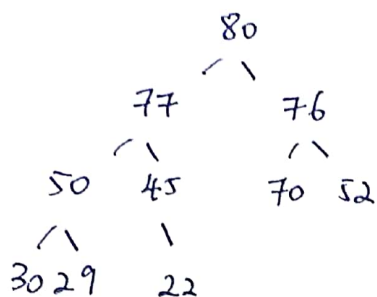 80
77 76
50 45 70 52
30 29 22